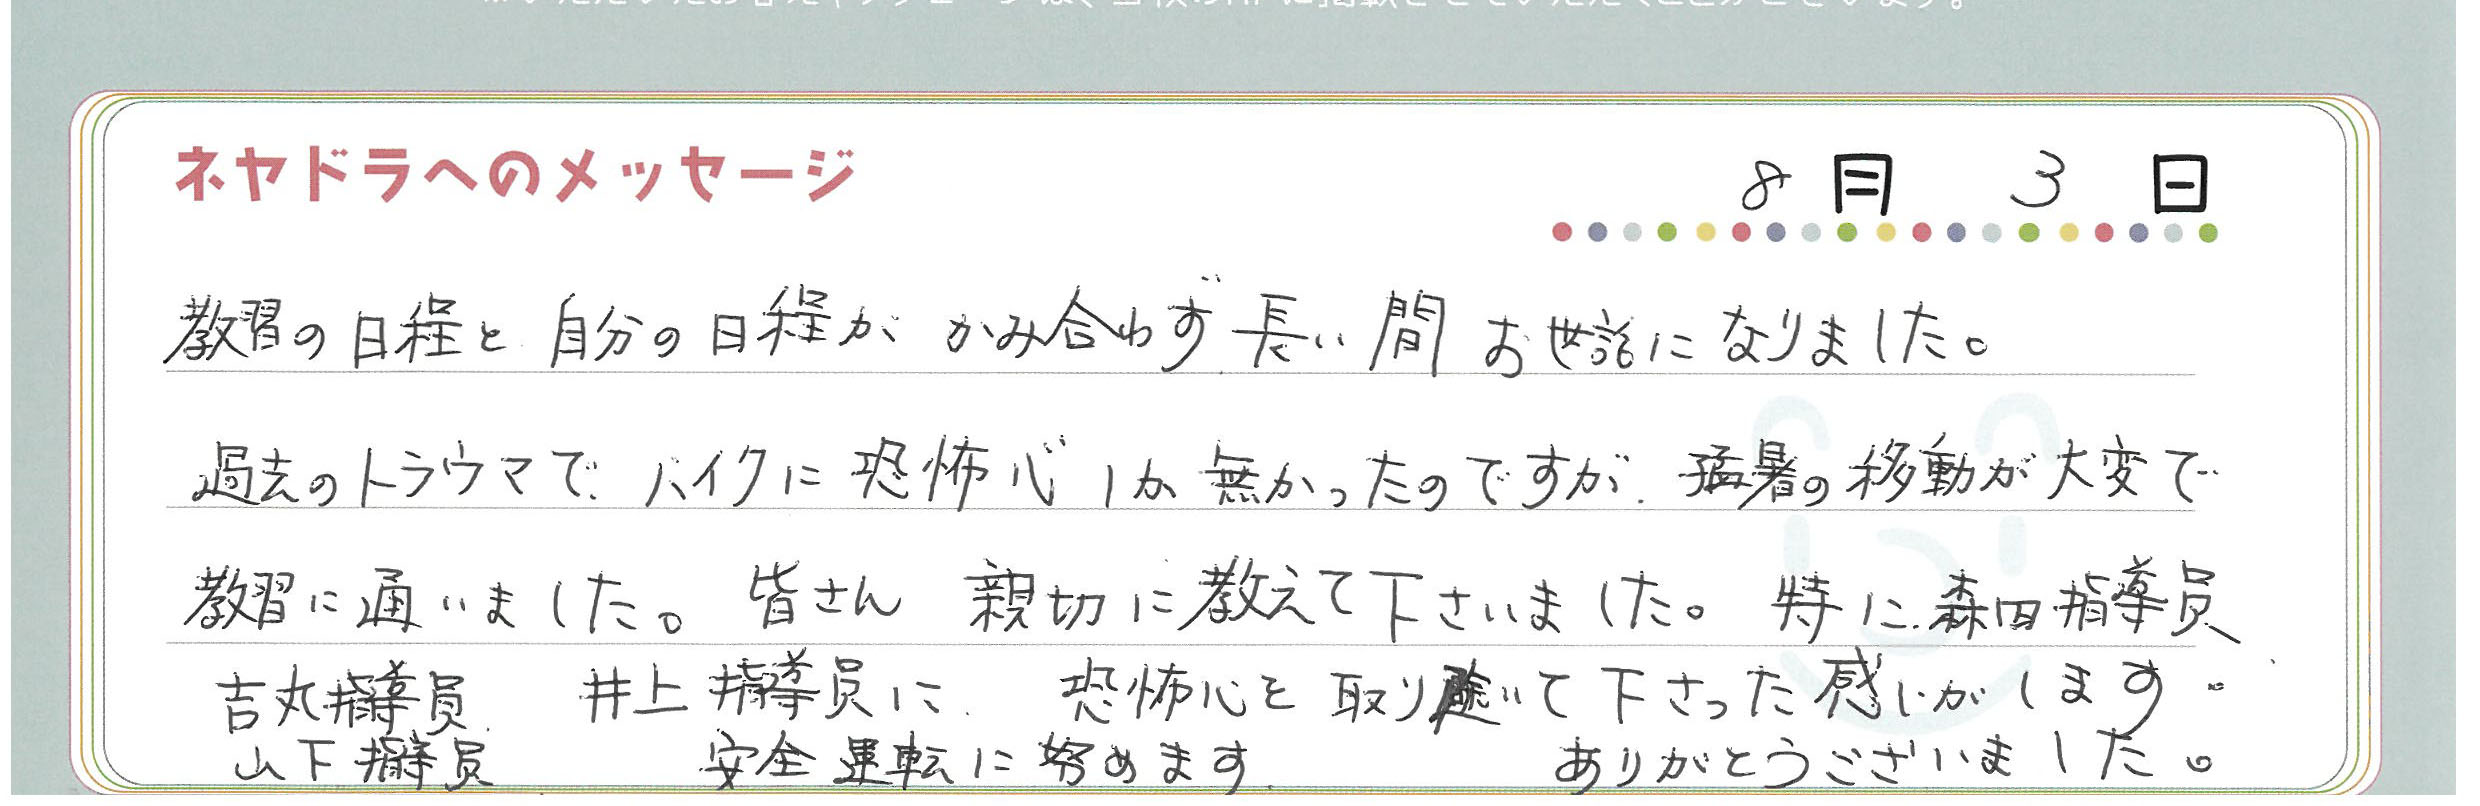 ネヤドラへのメッセージ
8月 3日
教習の日程と自分の日程が かみ合わず 長い間 お世話になりました。
過去のトラウマで バイクに 恐怖心しか 無かったのですが、猛暑の移動が大変で
教習に通いました。 皆さん 親切に教えて下さいました。 特に森田指導員
吉丸指導員 井上指導員に 恐怖心を 取り除いて下さった感じがします。
山下指導員 安全運転に努めます ありがとうございました。